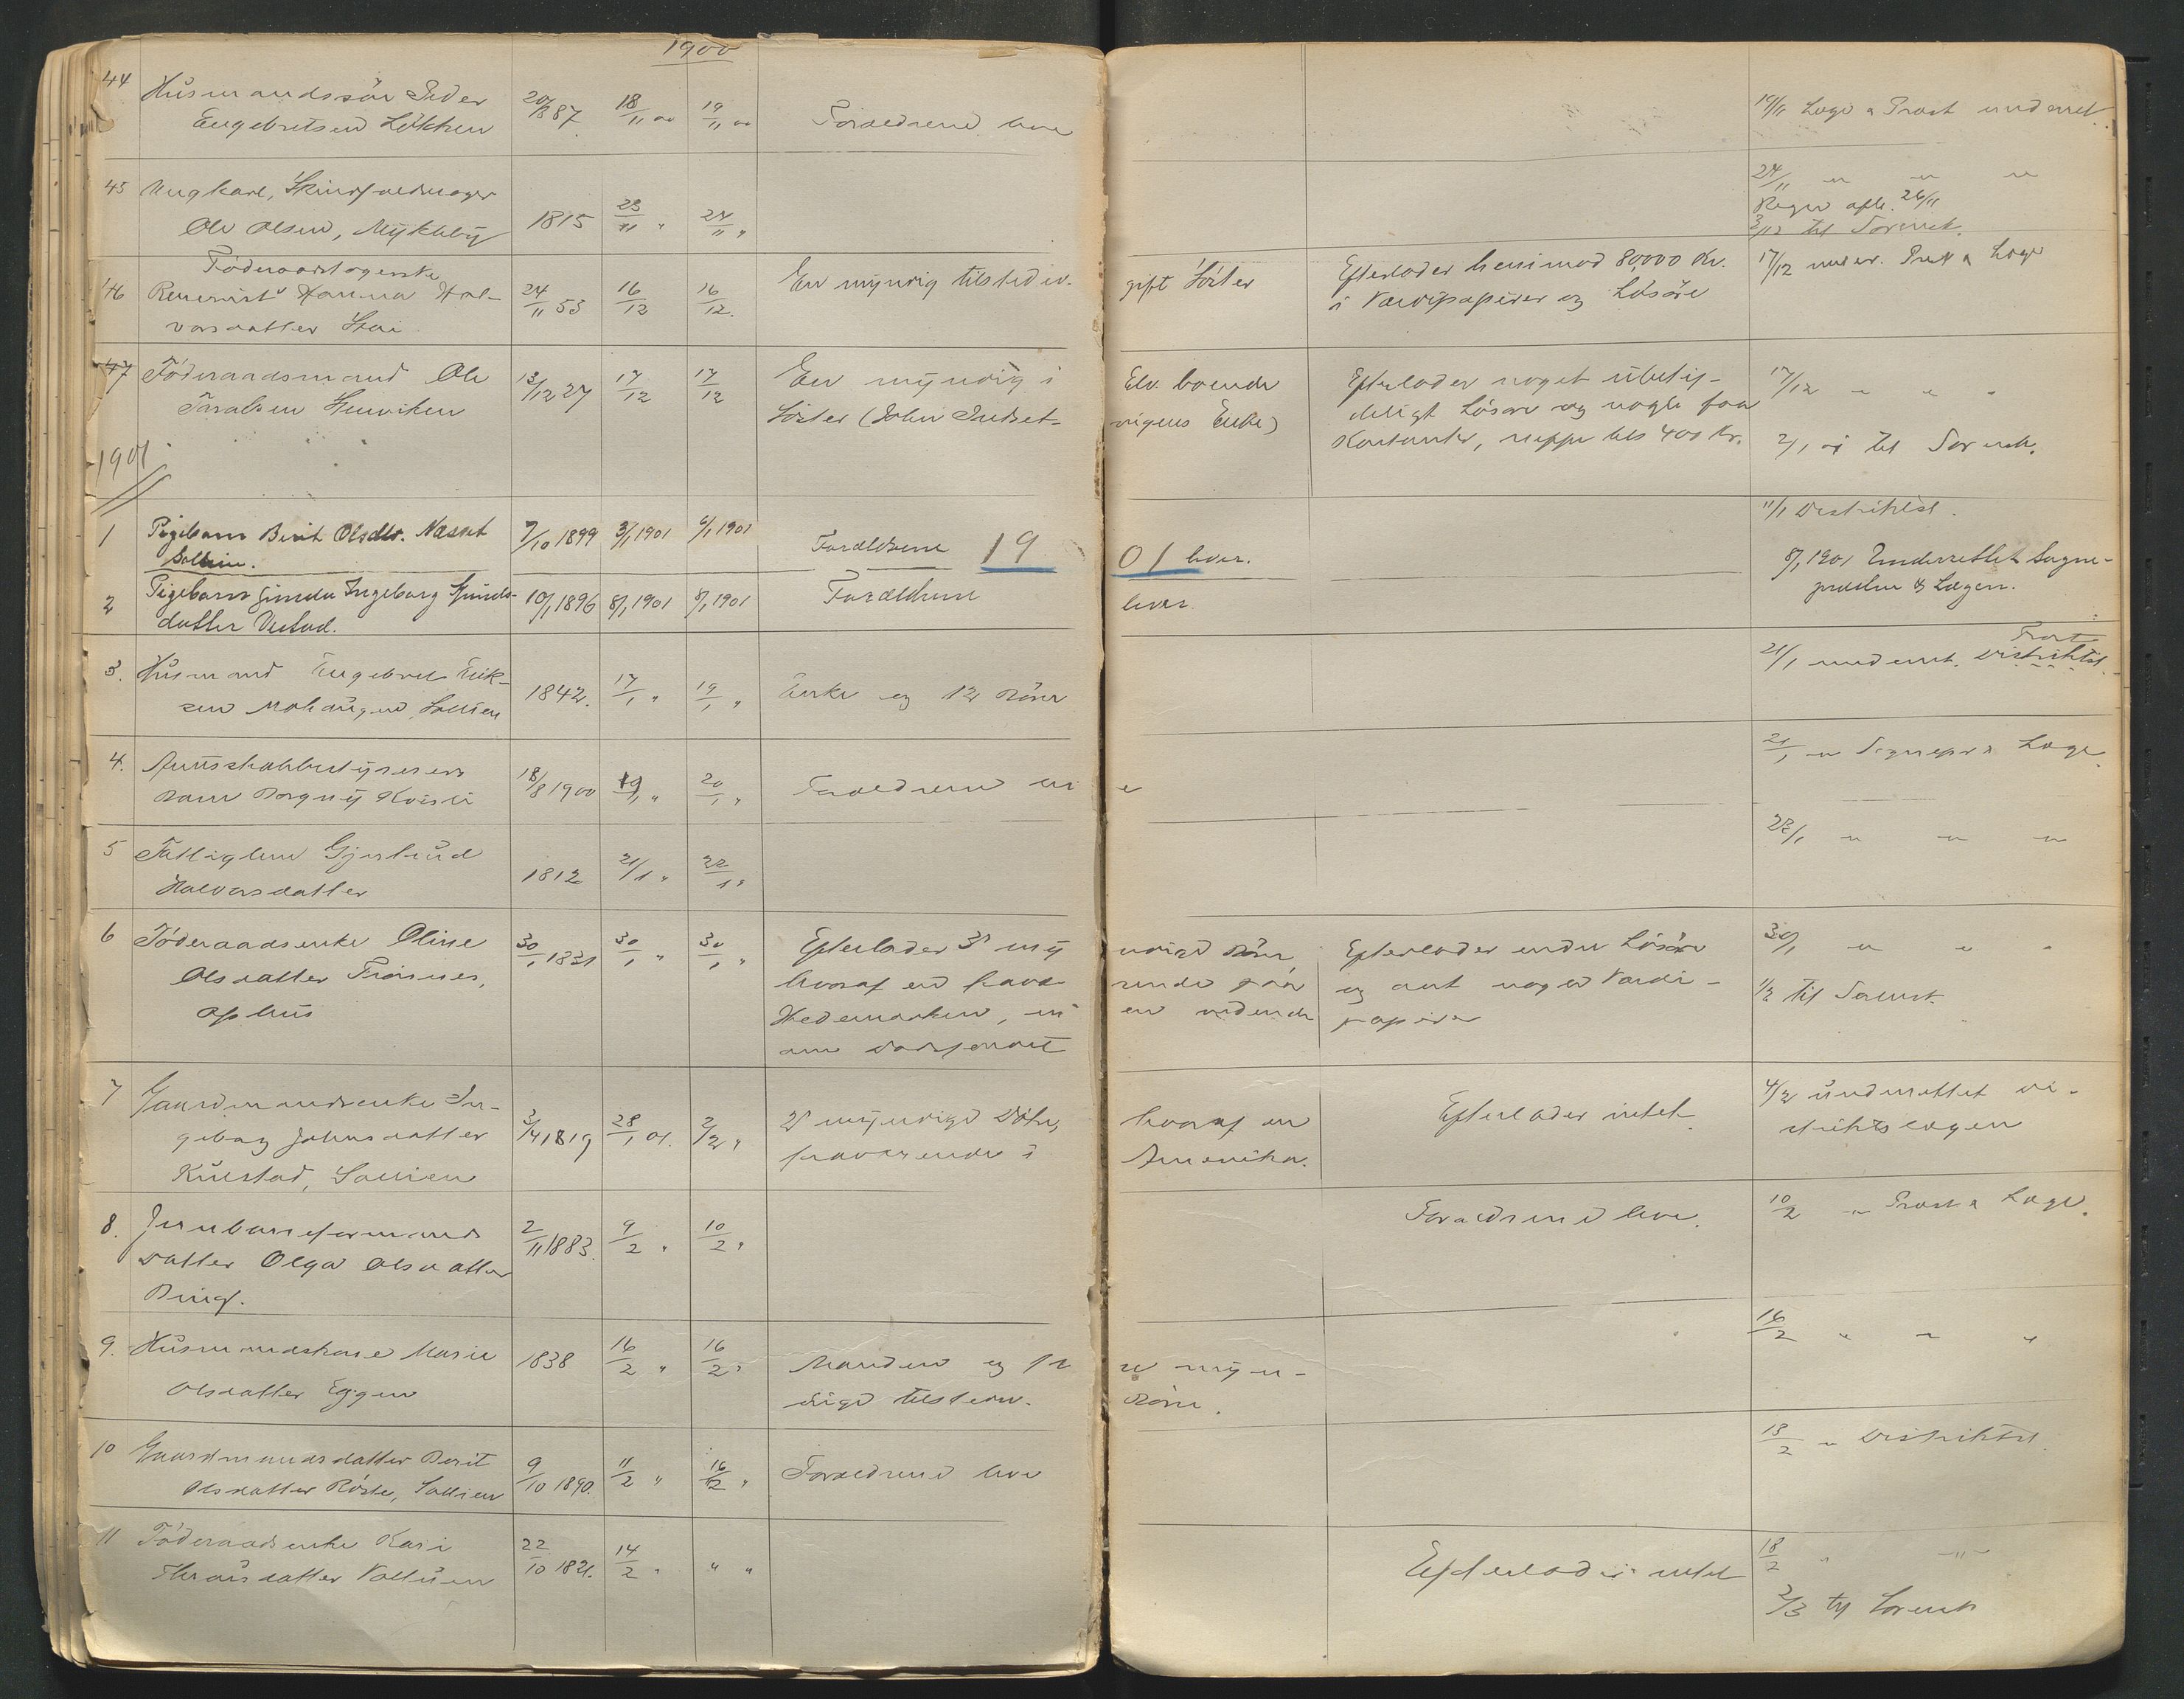 1900
44 Husmandssön Peder 20/8 87 18/11 00 19/11 00 Forældrene leve 19/11 Læge & Prost underret.
Engebretsen Løkken
45 Ungkarl, Skindfældmager 24/11 " " "
Ole Olsen, Mykleby 1815 23/11 " 24/11 " 26/11
2/12 til Sorensk.
Föderaadstagerske
46 Hanna Hal- 24/11 53 16/12 16/12. En myndig tilstedev. gift Söster Efterlader henimod 80,000 Kr. 17/12 under. Prest & Læge
vorsdatter Stai i Værdipapirer og Lösöre
47 Föderaadsmand Ole 13/12 27 17/12 17/12 En myndig i Elv. boende Efterlader noget ubety- 17/12 " " "
Taralsen Stenviken Söster (John Indset- vigens Enke) deligt Lösöre og nogle faa
Kontanter, neppe tils 400 Kr. 2/1 01 til Sorensk.
1901
11/1 Distriktsl.
1 Pigebarn Berit Olsdtr. Næsset 7/10 1899 3/1 1901 6/1 1901 Forældrene 1901 lever.
Sollien. 8/1 1901 Underrettet Sogne-
2 Pigebarn Gunda Ingeborg 10/1 1896 8/1 1901 8/1 1901 Forældrene lever. præsten & Lægen.
datter Vestad.
Prost
3. Husmand Engebret Erik- 1842. 17/1 " 19/1 " Enke og 12 Börn 21/1 underret. Distriktsl.
sen Mohaugen, Sollien
4. Amtsskolebestyrerens 18/8 1900 19/1 " 20/1 " Forældrene leve 21/1 " Sognepr & Læge.
Barn Borgny Kvisli
5 Fattiglem Gjertrud 1812 21/1 " 22/1 " 22/1 " " "
Halvorsdatter
6 Föderaadsenke Oline 30/1 1831 30/1 " 30/1 " Efterlader 3 myndige Börn, Efterlader endu Lösöre 30/1 " " "
Olsdatter Trönnes, hvoraf en fraværende paa og ant. noget Værdi- 1/2 til Sorensk.
Ophus Hedemarken, en udenda papirer
7 Gaardmandsenke In- 3/4 1819 28/1 01. 2/2 " 2 myndige Döttre, hvoraf en Efterlader intet. 4/2 underrettet di-
geborg Johnsdatter fraværende i Amerika. striktslægen
Kulstad, Sollien
8. Jernbaneformands 2/11 1883. 9/2 " 10/2 " Forældrene leve. 10/2 " Prost & Læge.
datter Olga Olsdatter
9. Husmandskone Marie 1838 16/2 " 16/2 " Manden og myn- 16/2 " " "
Olsdatter Eggen dige tilstedev. Börn.
10 Gaardmandsdatter Berit 9/10 1890. 11/2 " 16/2 " Forældrene leve 18/2 " Distriktsl.
Olsdatter Röste, Sollien
11 Föderaadsenke Kari 22/10 1821. 14/2 " " " Efterlader intet 18/2 " "
2/3 til Sorensk